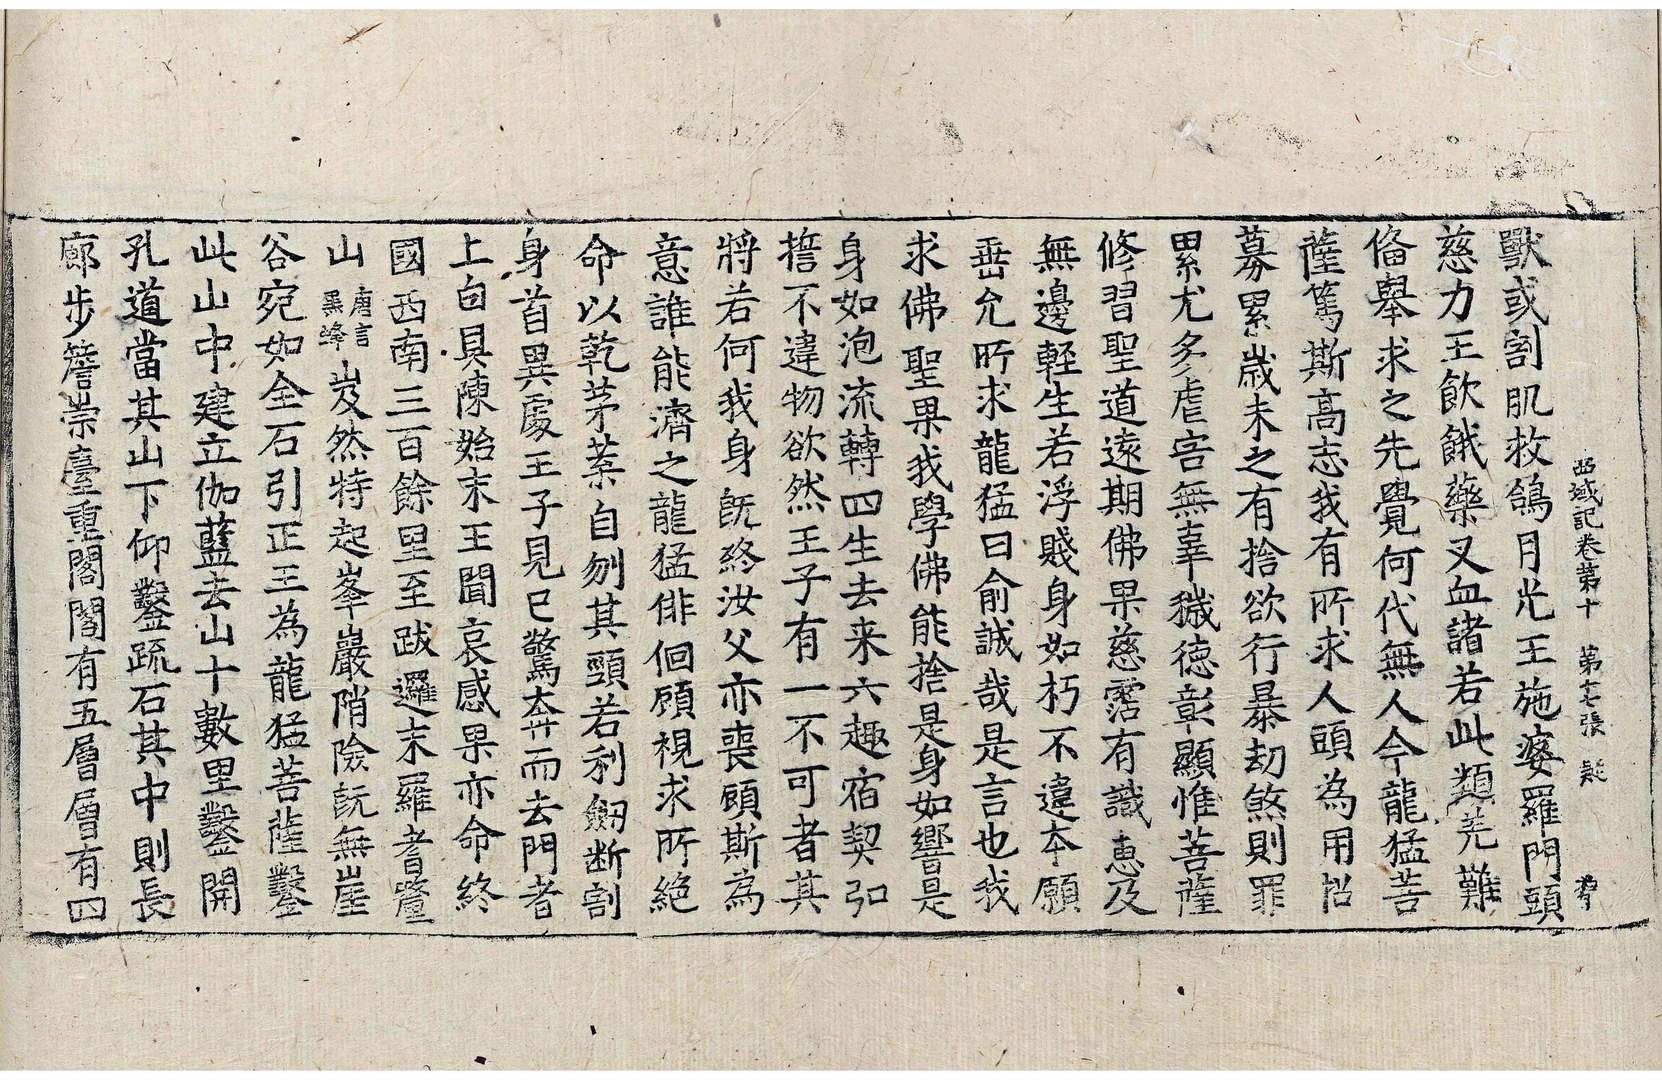 西域記卷第十　第十七張　疑
獸或割肌救鴿月光王施婆羅門頭
慈力王飲餓藥叉血諸若此類羌難
俻舉求之先覺何代無人今龍猛菩
薩篤斯高志我有所求人頭為用招
募累歲未之有捨欲行暴劫煞則罪
累尤多虐害無辜穢德彰顯惟菩薩
修習聖道遠期佛果慈霑有識惠及
無邊輕生若浮賤身如朽不違本願
垂允所求龍猛曰俞誠哉是言也我
求佛聖果我學佛能捨是身如響是
身如泡流轉四生去来六趣宿契弘
誓不違物欲然王子有一不可者其
將若何我身旣終汝父亦喪顧斯為
意誰能濟之龍猛俳佪顧視求所絕
命以乾茅葉自刎其頸若利劒断割
身首異處王子見已驚奔而去門者
上白具陳始末王聞哀感果亦命終
國西南三百餘里至跋邏末羅耆釐
山唐言黑峰岌然特起峯巖陗險旣無崖
谷宛如全石引正王為龍猛菩薩鑿
此山中建立伽藍去山十數里鑿開
孔道當其山下仰鑿疏石其中則長
廊步簷崇臺重閣閣有五層層有四